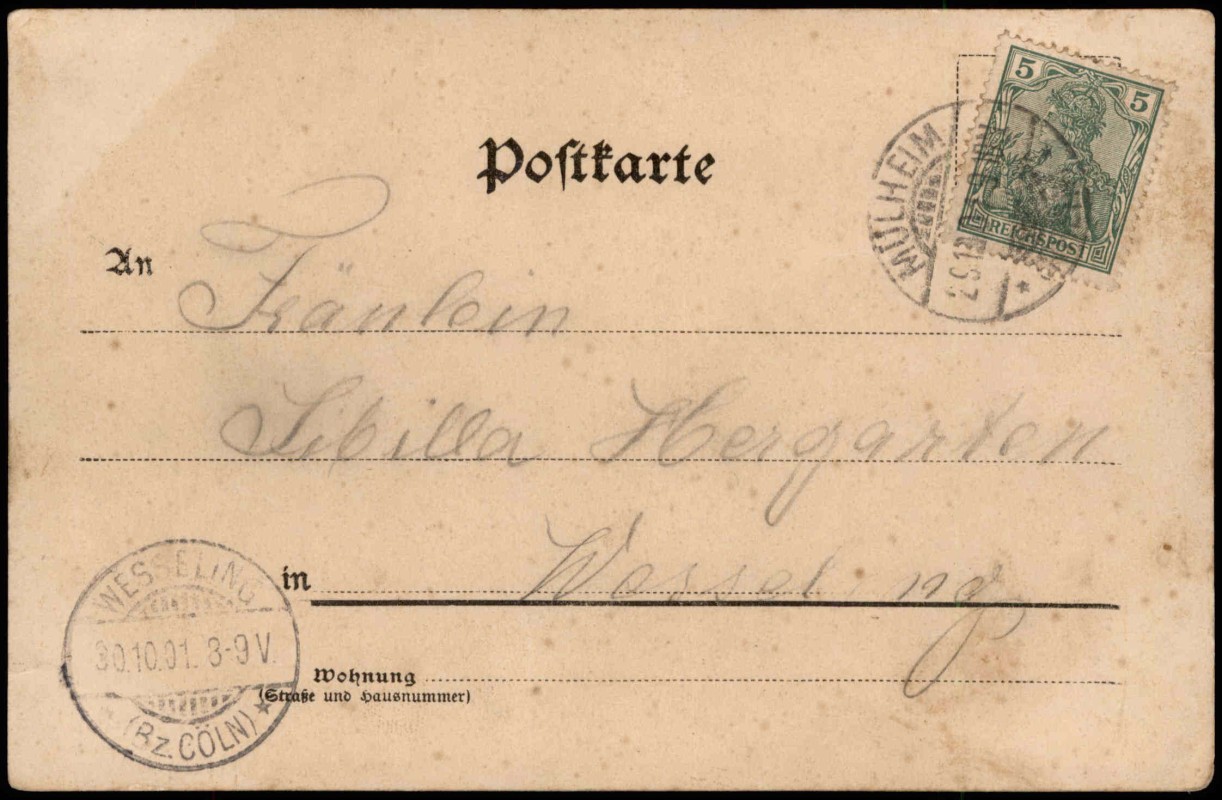 Poſtkarte
5 5
REICHSPOST
MÜLHEIM
An Fräulein
Sibilla Hergarten
in Wesseling
WESSELING
30.10.01. 8-9 V.
(Bz. CÖLN)
Wohnung
(Straße und Hausnummer)